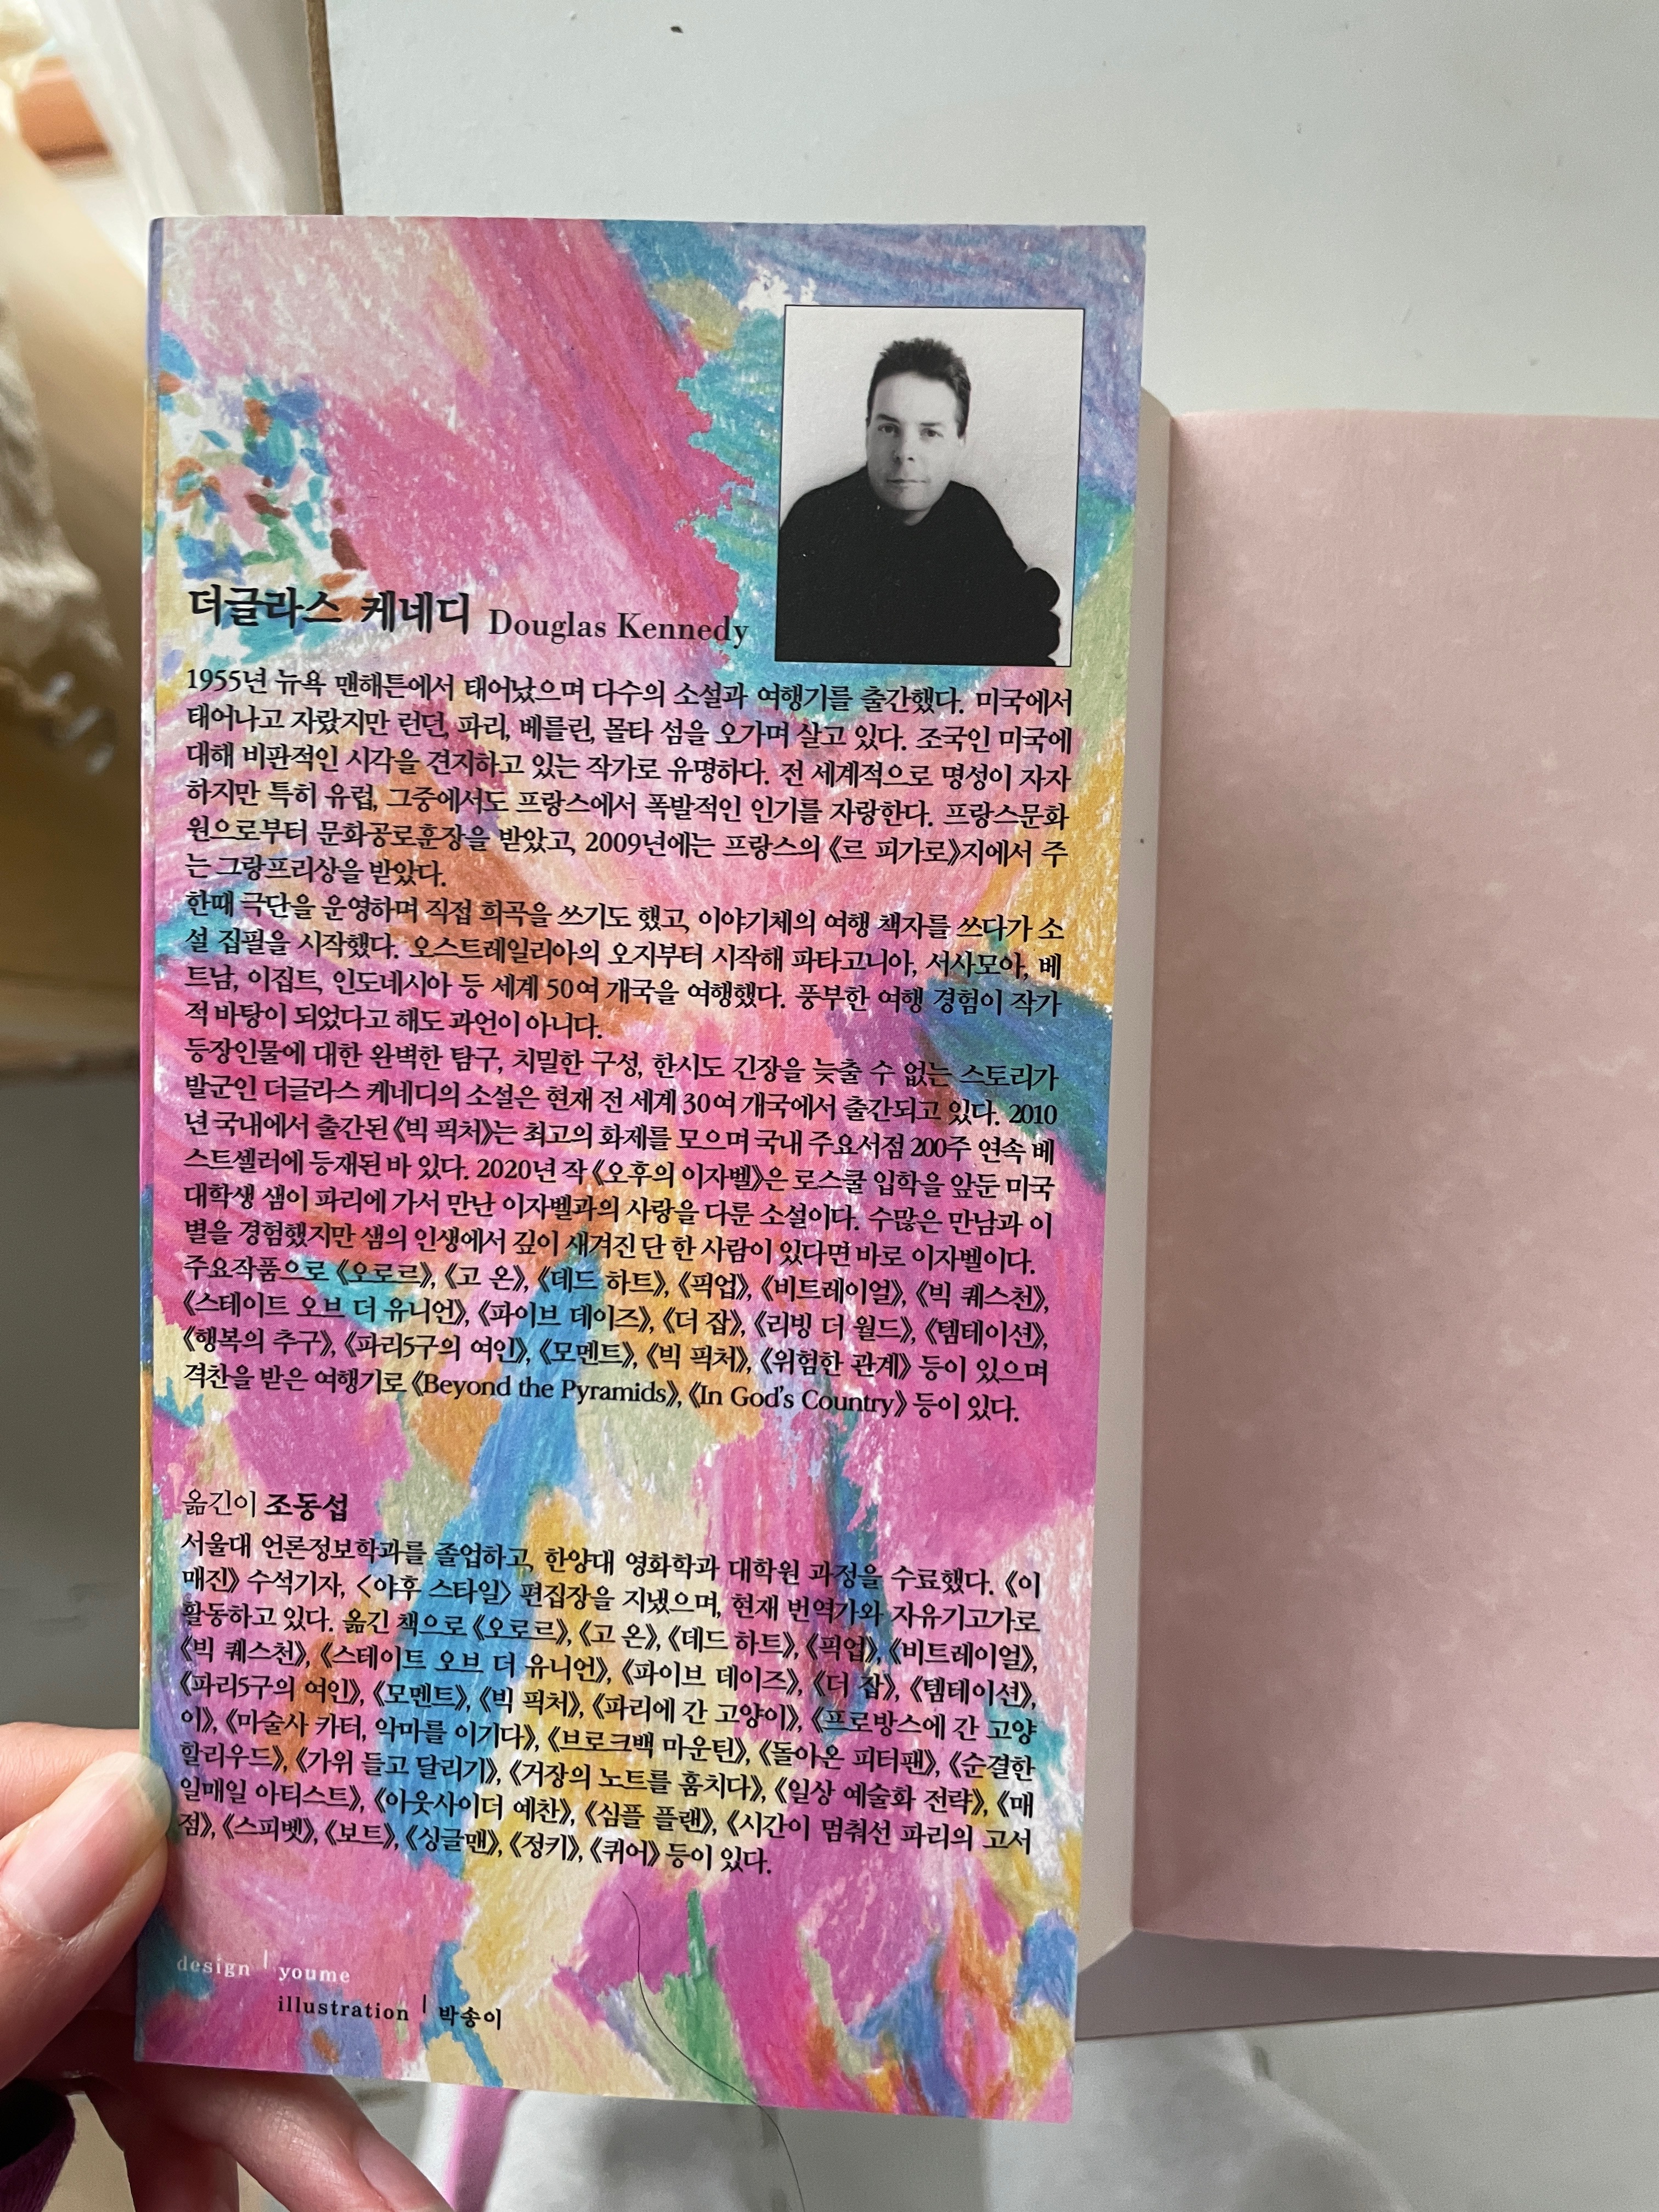 더글라스 케네디 Douglas Kennedy
1955년 뉴욕 맨해튼에서 태어났으며 다수의 소설과 여행기를 출간했다. 미국에서
태어나고 자랐지만 런던, 파리, 베를린, 몰타 섬을 오가며 살고 있다. 조국인 미국에
대해 비판적인 시각을 견지하고 있는 작가로 유명하다. 전 세계적으로 명성이 자자
하지만 특히 유럽, 그중에서도 프랑스에서 폭발적인 인기를 자랑한다. 프랑스문화
원으로부터 문화공로훈장을 받았고, 2009년에는 프랑스의 《르 피가로》지에서 주
는 그랑프리상을 받았다.
한때 극단을 운영하며 직접 희곡을 쓰기도 했고, 이야기체의 여행 책자를 쓰다가 소
설 집필을 시작했다. 오스트레일리아의 오지부터 시작해 파타고니아, 서사모아, 베
트남, 이집트, 인도네시아 등 세계 50여 개국을 여행했다. 풍부한 여행 경험이 작가
적 바탕이 되었다고 해도 과언이 아니다.
등장인물에 대한 완벽한 탐구, 치밀한 구성, 한시도 긴장을 늦출 수 없는 스토리가
발군인 더글라스 케네디의 소설은 현재 전 세계 30여 개국에서 출간되고 있다. 2010
년 국내에서 출간된 《빅 픽처》는 최고의 화제를 모으며 국내 주요서점 200주 연속 베
스트셀러에 등재된 바 있다. 2020년 작 《오후의 이자벨》은 로스쿨 입학을 앞둔 미국
대학생 샘이 파리에 가서 만난 이자벨과의 사랑을 다룬 소설이다. 수많은 만남과 이
별을 경험했지만 샘의 인생에서 깊이 새겨진 단 한 사람이 있다면 바로 이자벨이다.
주요작품으로 《오로르》, 《고 온》, 《데드 하트》, 《픽업》, 《비트레이얼》, 《빅 퀘스천》,
《스테이트 오브 더 유니언》, 《파이브 데이즈》, 《더 잡》, 《리빙 더 월드》, 《템테이션》,
《행복의 추구》, 《파리5구의 여인》, 《모멘트》, 《빅 픽처》, 《위험한 관계》 등이 있으며
격찬을 받은 여행기로 《Beyond the Pyramids》, 《In God's Country》 등이 있다.
옮긴이 조동섭
서울대 언론정보학과를 졸업하고, 한양대 영화학과 대학원 과정을 수료했다. 《이
매진》 수석기자, 〈야후 스타일〉 편집장을 지냈으며, 현재 번역가와 자유기고가로
활동하고 있다. 옮긴 책으로 《오로르》, 《고 온》, 《데드 하트》, 《픽업》, 《비트레이얼》,
《빅 퀘스천》, 《스테이트 오브 더 유니언》, 《파이브 데이즈》, 《더 잡》, 《템테이션》,
《파리5구의 여인》, 《모멘트》, 《빅 픽처》, 《파리에 간 고양이》, 《프로방스에 간 고양
이》, 《마술사 카터, 악마를 이기다》, 《브로크백 마운틴》, 《돌아온 피터팬》, 《순결한
할리우드》, 《가위 들고 달리기》, 《거장의 노트를 훔치다》, 《일상 예술화 전략》, 《매
일매일 아티스트》, 《아웃사이더 예찬》, 《심플 플랜》, 《시간이 멈춰선 파리의 고서
점》, 《스피벳》, 《보트》, 《싱글맨》, 《정키》, 《퀴어》 등이 있다.
design | youme
illustration | 박송이